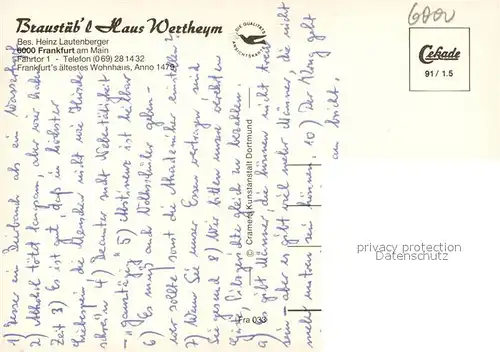 Braustüb'l Haus Wertheym
Bes. Heinz Lautenberger
6000 Frankfurt am Main
Fahrtor 1 - Telefon (0 69) 28 14 32
Frankfurt's ältestes Wohnhaus, Anno 1479
DIE QUALITÄTS ANSICHTSKARTE
6000
Cekade
91 / 1.5
© Cramers Kunstanstalt Dortmund
Fra 033
privacy protection
watermark
1) Besser ein Bierbauch als ein Wasserkopf
2) Alkohol tötet langsam, aber wir haben
Zeit 3) Es ist gut, daß in höchster
Liebespein die Menschen nicht wie Hirsche
schrein 4) Beamter sucht Nebentätigkeit
- "ganztägig" 5) Abstinenz ist heilbar
6) Es muß auch Volksschüler geben -
wer sollte sonst die Akademiker einstellen?
7) Wenn Sie unser Essen vertragen sind
Sie gesund 8) Wir bitten unsere verehrten
Gäste, Pilzgerichte gleich zu bezahlen.
9) Es gibt Männer, die können nicht treu
sein - aber es gibt viel mehr Männer, die nicht
mehr untreu sein können. 10) Der Klang geht
an bricht.